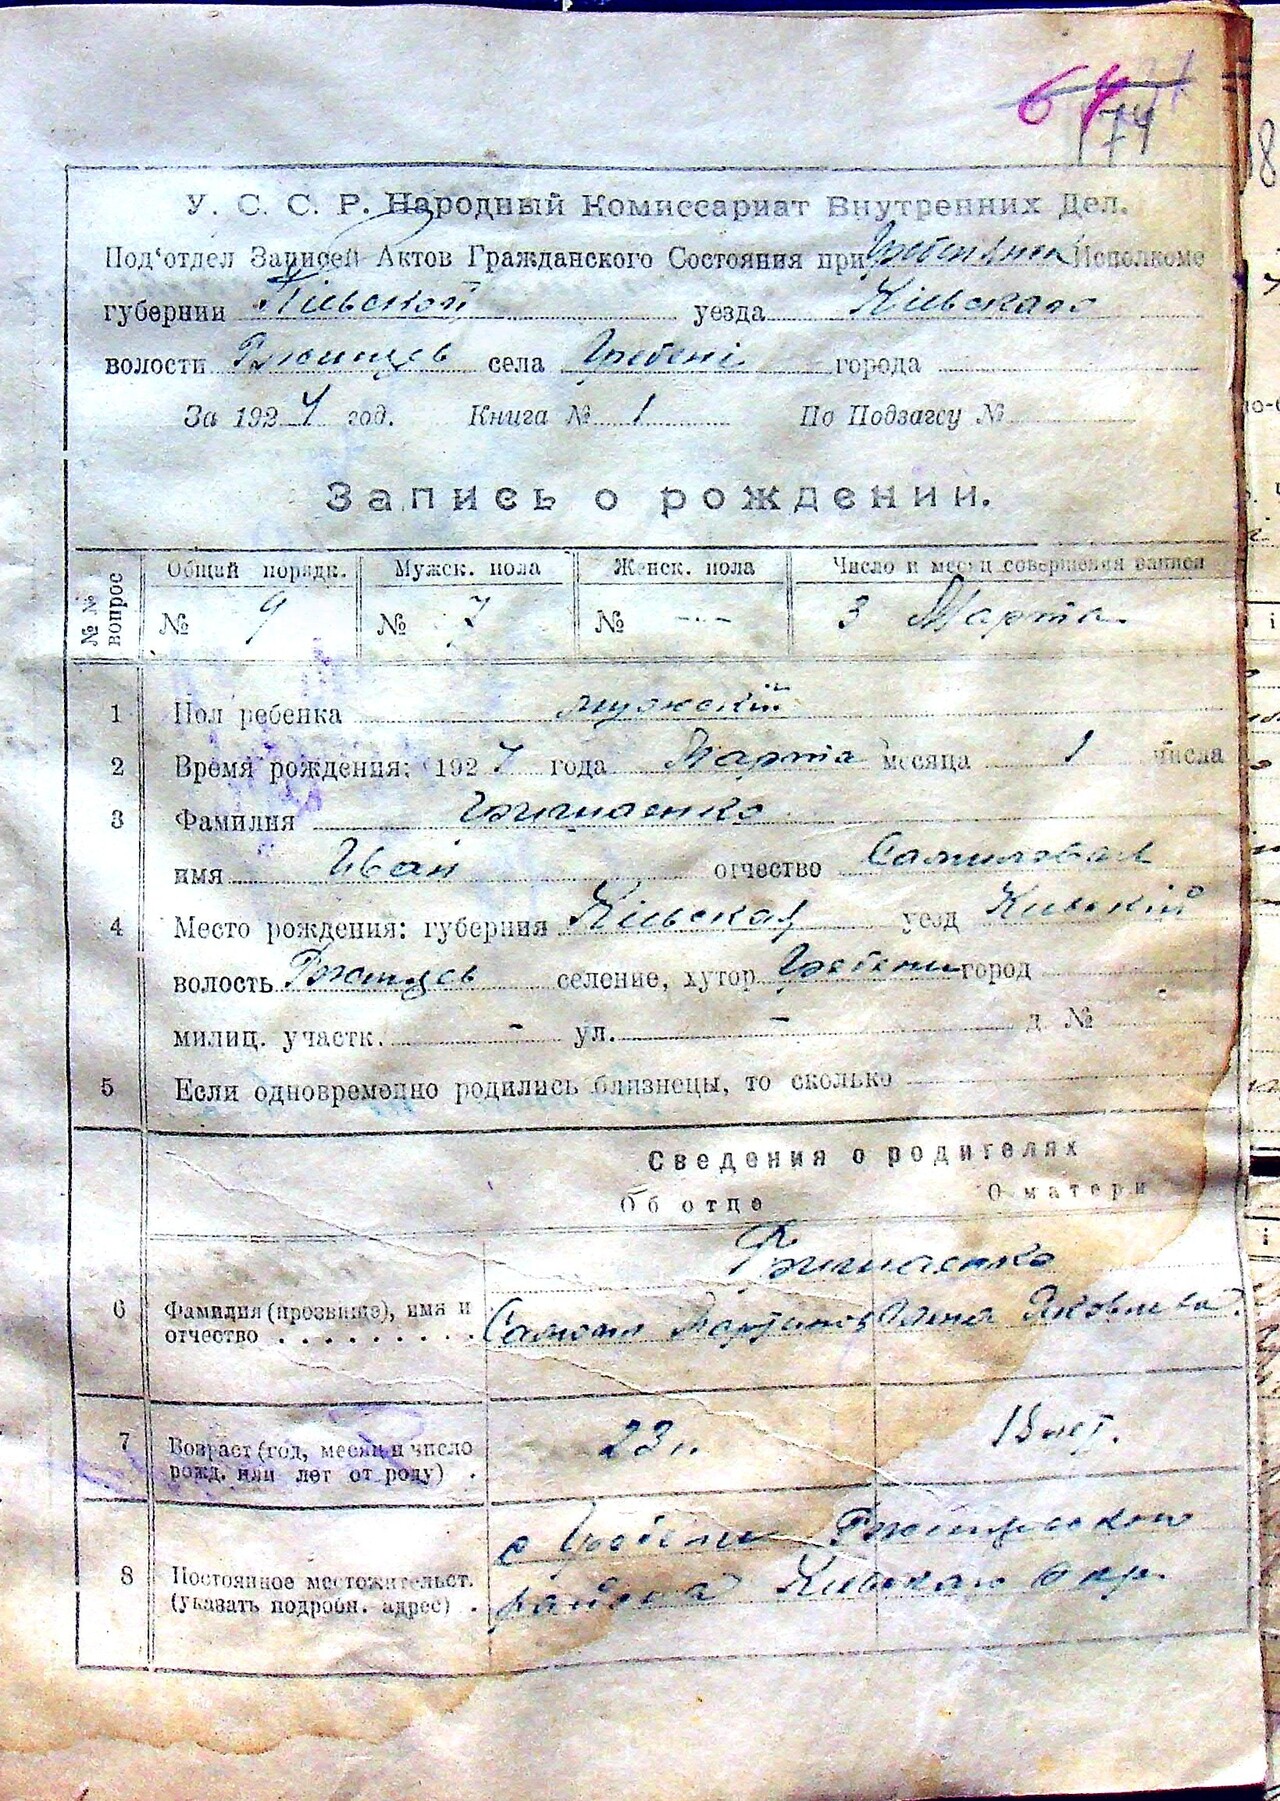 64
174
У. С. С. Р. Народный Комиссариат Внутренних Дел.
Под'отдел Записей Актов Гражданского Состояния при Исполкоме
губернии Кіевской уезда Кіевскаго
волости Ржищев села Гребені города
За 1924 год. Книга № 1 По Подзагсу №
Запись о рождении.
№№ вопрос
Общий порядк. Мужск. пола Женск. пола Число и месяц совершения записи
№ 9 № 7 № --- 3 Марта
1 Пол ребенка мужскій
2 Время рождения: 192 года Марта месяца 1 числа
3 Фамилия
имя Иван отчество
4 Место рождения: губерния Кіевская уезд Киевскій
волость Ржищев селение, хутор Гребени город
милиц. участк. - ул. - д №
5 Если одновременно родились близнецы, то сколько
Сведения о родителях
Об отце О матери
6 Фамилия (прозвище), имя и
отчество Яковлева
7 Возраст (год, месяц и число
рожд. или лет от роду) 23 лет.
8 Постоянное местожительст.
(указать подробн. адрес)
с Гребени Ржищевского
района Киевскаго Окр.